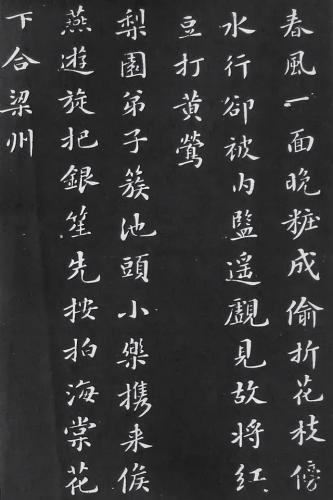 春風一面晚粧成偷折花枝傍
水行卻被內監遙覷見故將紅
豆打黃鶯
梨園弟子簇池頭小樂攜來俟
燕遊旋把銀笙先按拍海棠花
下合梁州